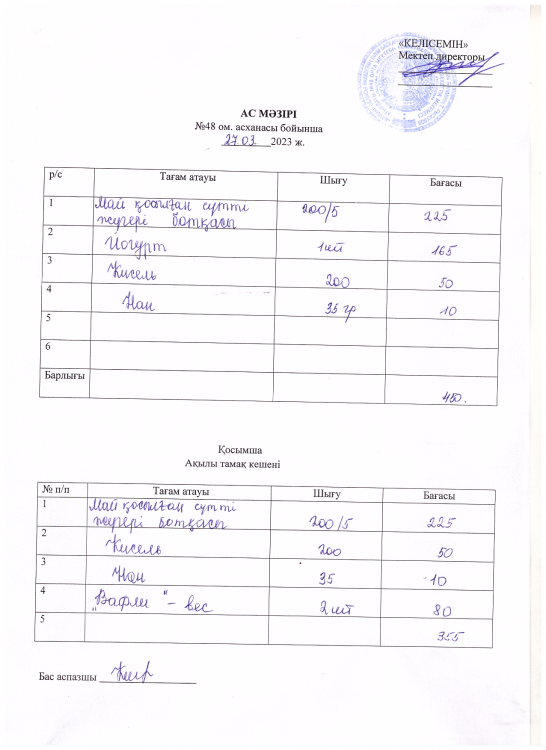 «КЕЛІСЕМІН»
Мектеп директоры
АС МӘЗІРІ
№48 ом. асханасы бойынша
27.03 2023 ж.
р/с Тағам атауы Шығу Бағасы
1 Май қосылған сүтті жүгері ботқасы 200/5 225
2 Йогурт 1шт 165
3 Кисель 200 50
4 Нан 35 гр 10
5
6
Барлығы 450.
Қосымша
Ақылы тамақ кешені
№ п/п Тағам атауы Шығу Бағасы
1 Май қосылған сүтті жүгері ботқасы 200/5 225
2 Кисель 200 50
3 Нан 35 10
4 „Вафли“ - вес 2 шт 80
5 355
Бас аспазшы